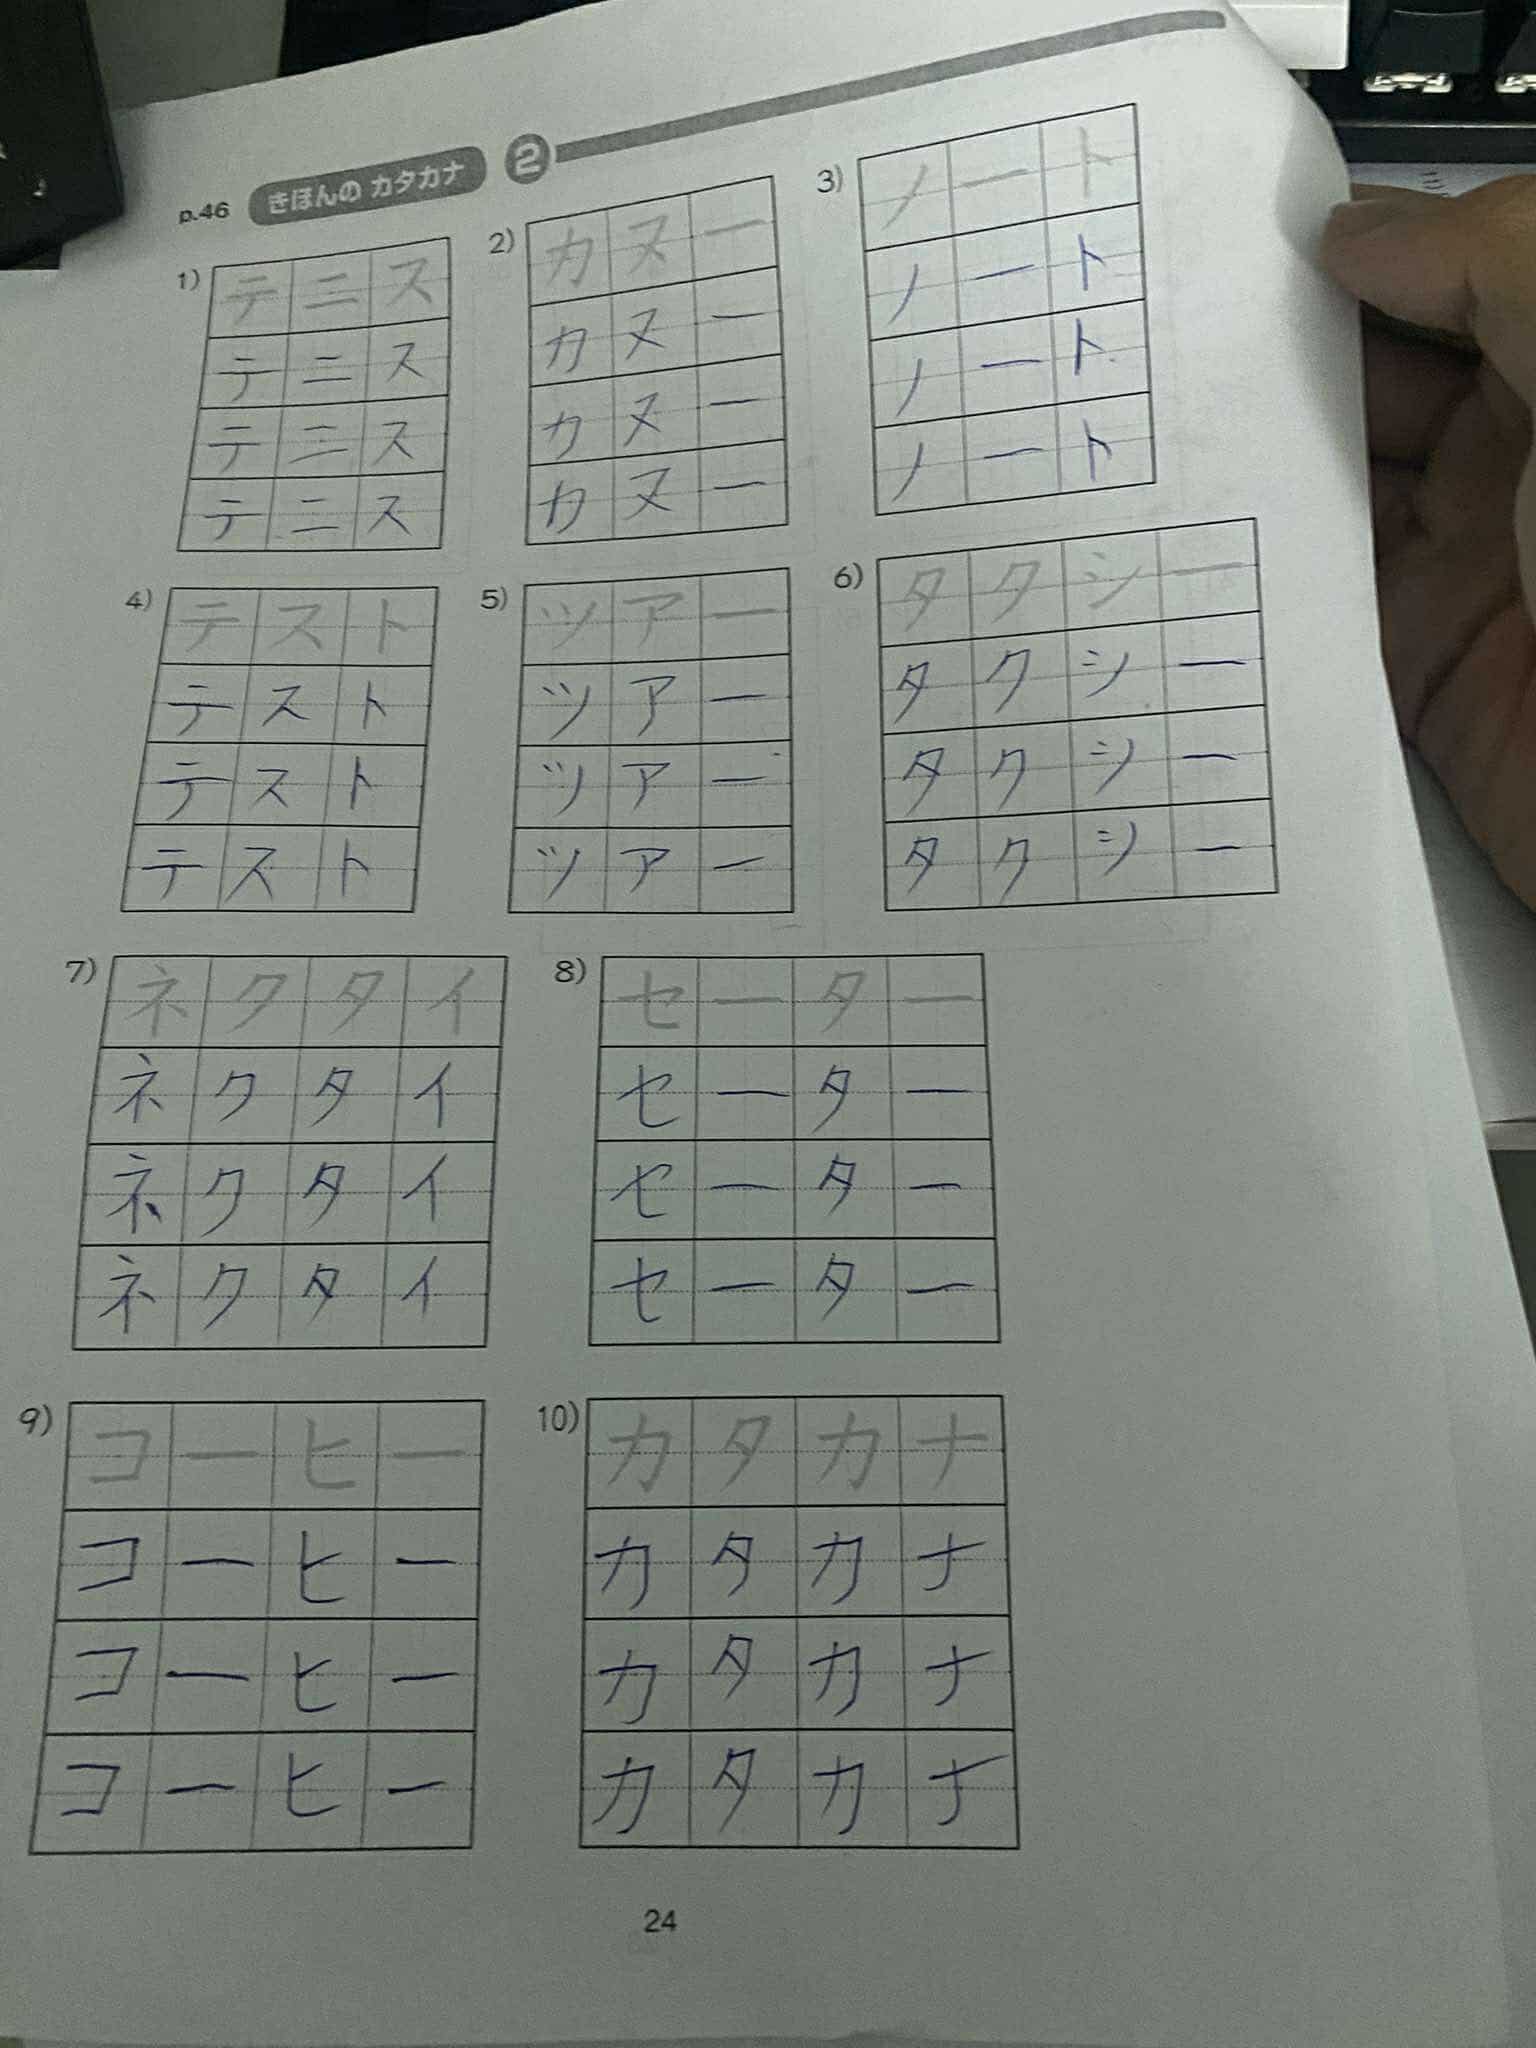 p.46 きほんの カタカナ 2
1) テニス
テニス
テニス
テニス
2) カヌー
カヌー
カヌー
カヌー
3) ノート
ノート
ノート
ノート
4) テスト
テスト
テスト
テスト
5) ツアー
ツアー
ツアー
ツアー
6) タクシー
タクシー
タクシー
タクシー
7) ネクタイ
ネクタイ
ネクタイ
ネクタイ
8) セーター
セーター
セーター
セーター
9) コーヒー
コーヒー
コーヒー
コーヒー
10) カタカナ
カタカナ
カタカナ
カタカナ
24